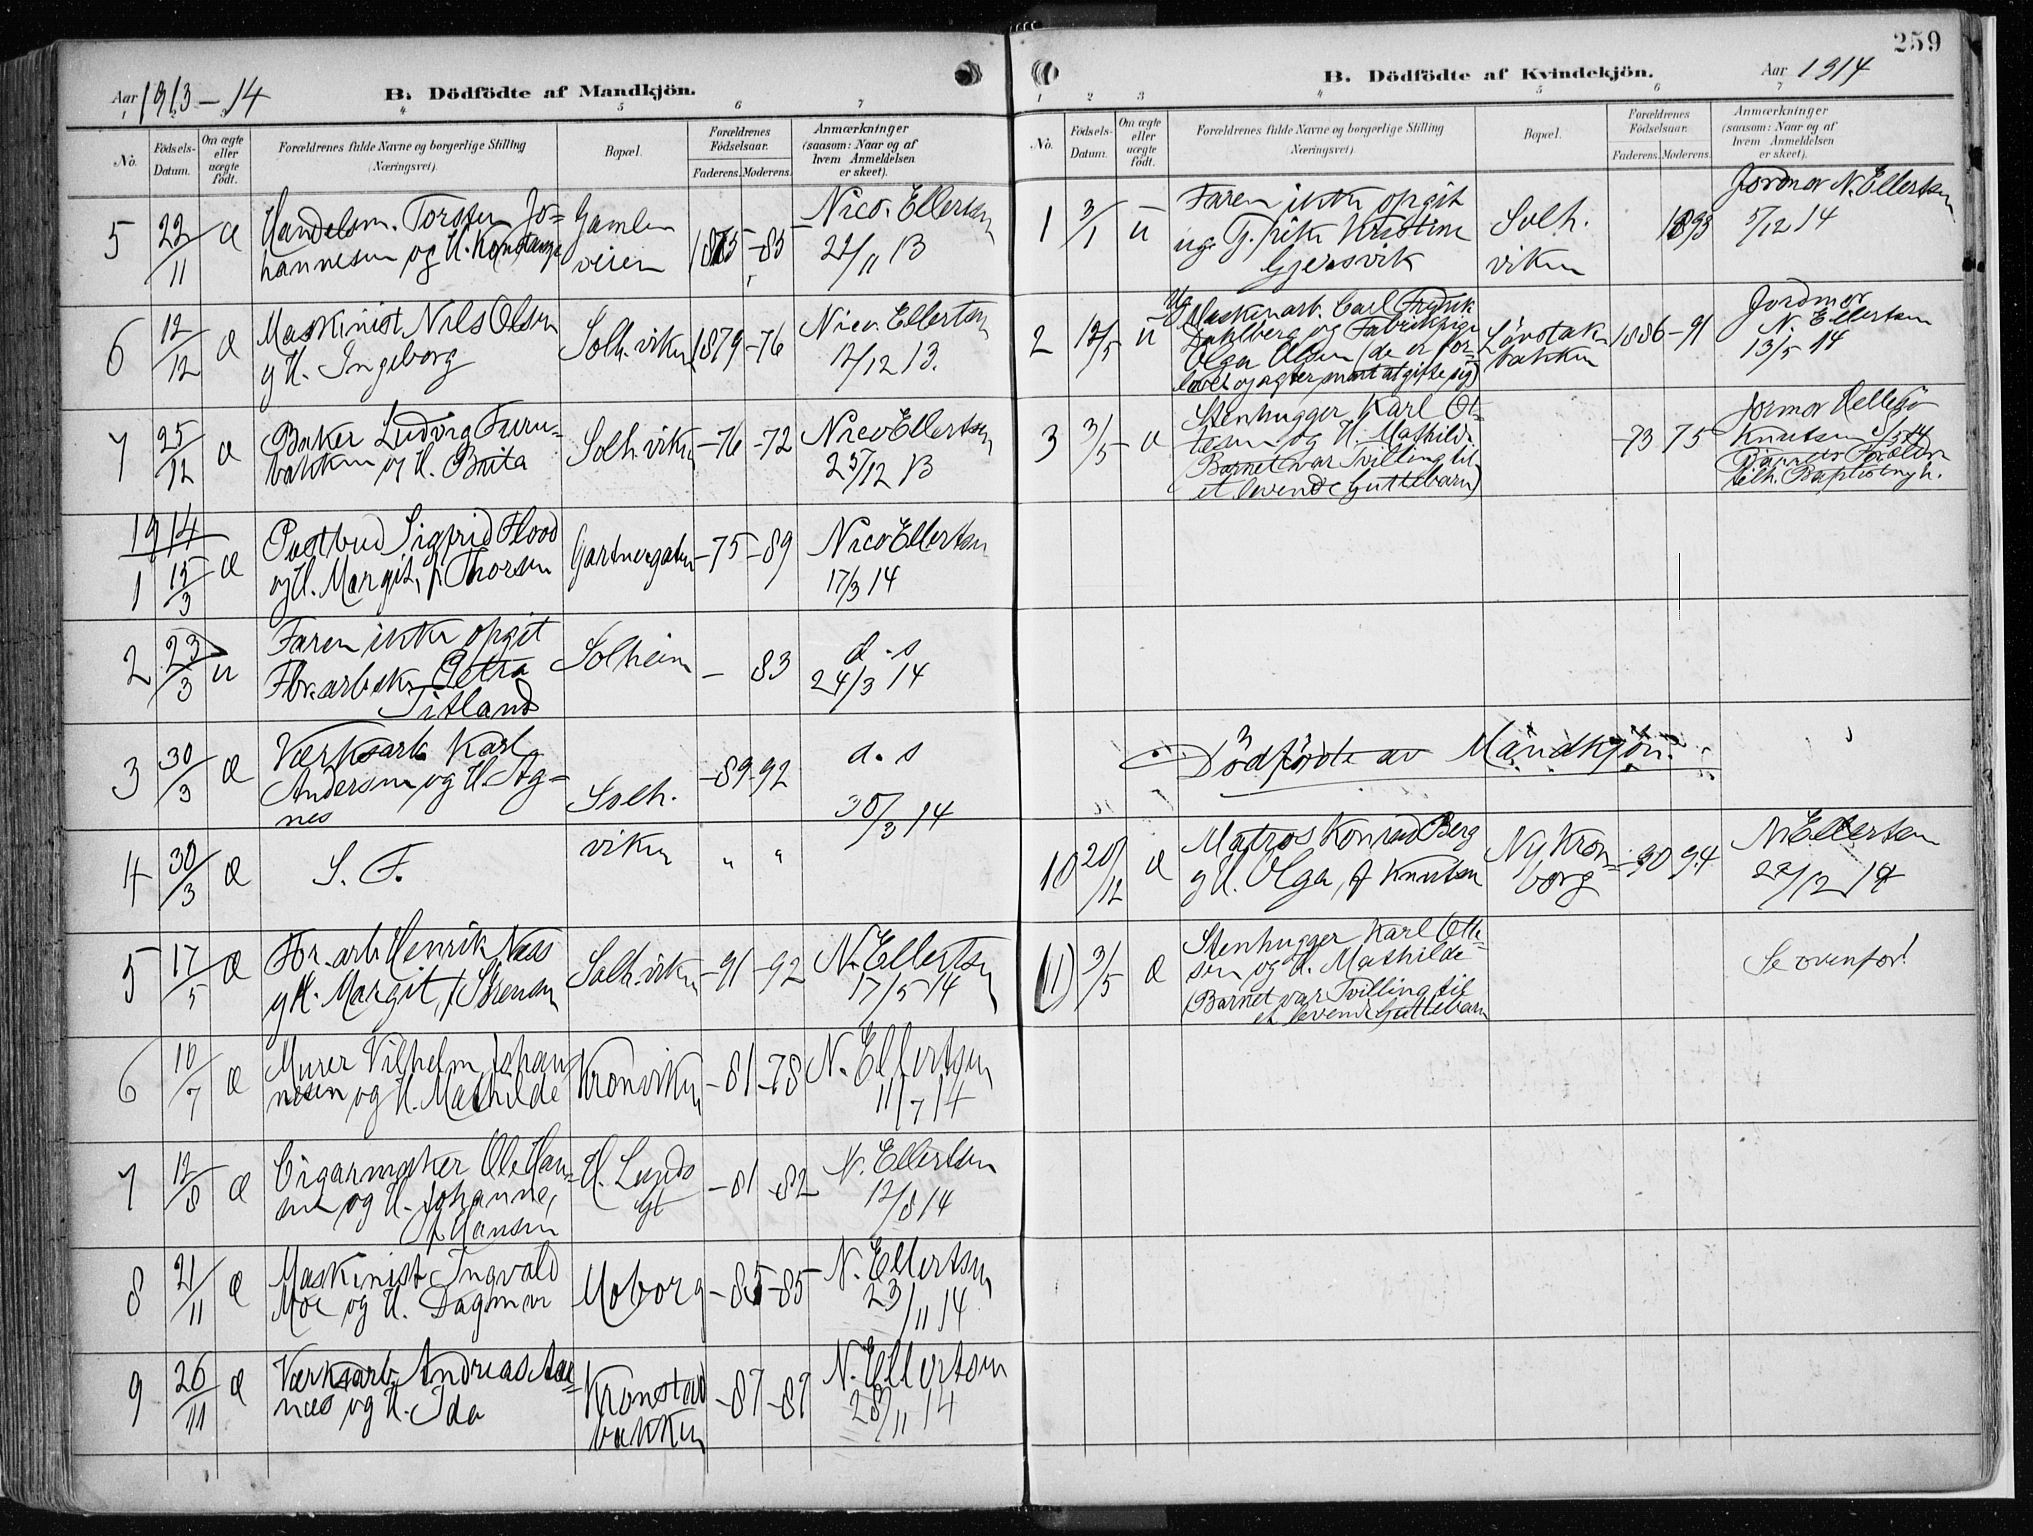 Aar 1913–14
B. Dödfödte af Mandkjön.
No.
Födsels-Datum.
Om ægte eller uægte födt.
Forældrenes fulde Navne og borgerlige Stilling (Næringsvei).
Bopæl.
Forældrenes Födselsaar.
Faderens.
Moderens.
Anmærkninger (saasom: Naar og af hvem Anmeldelsen er skeet).
5 22/11 Æ
Handelsm. Torsten Jo-
hannesen og H. Konstanse
Gamle-
veien
1875 -85
Nico. Ellertsen
22/11 13
6 12/12 Æ
Maskinist Nils Olsen
og H. Ingeborg
Solh.viken 1879 -76
Nico. Ellertsen
12/12 13.
7 25/12 Æ
Baker Ludvig Furu-
bakken og H. Brita
Solh.viken -76 -72
Nico Ellertsen
25/12 13
1914
1 15/3 Æ
Postbud Sigfrid Flood
og H. Margit, f. Thorsen
Gartnergaten -75 -89
Nico Ellertsen
17/3 14
2 23/3 u
Faren ikke opgit
For.arbske Petra
Titland
Solheim – 83
d. s
24/3 14
3 30/3 Æ
Værksarb. Karl
Andersen og H. Ag-
nes
Solh.
viken
-89 -92
d. s
30/3 14
4 30/3 Æ
S. F.
" "
5 17/5 Æ
For. arb. Henrik Næss
og H. Margit, f. Sörensen
Solh.viken -91 -92
N. Ellertsen
17/5 14
6 10/7 Æ
Murer Vilhelm Johan-
nesen og H. Mathilde
Kronviken -81 -78
N. Ellertsen
11/7 14
7 12/8 Æ
Cigarmaker Ole Han-
sen og H. Johanne,
f. Hansen
H. Lunds
gt
-81 -82
N. Ellertsen
12/8 14
8 21/11 Æ
Maskinist Ingvald
Moe og H. Dagmar
Moborg -85 -85
N. Ellertsen
23/11 14
9 26/11 Æ
Værksarb. Andreas Aar-
næs og H. Ida
Kronstad
bakken
-87 -87
N. Ellertsen
28/11 14
259
B. Dödfödte af Kvindekjön.
Aar 1914
No.
Födsels-Datum.
Om ægte eller uægte födt.
Forældrenes fulde Navne og borgerlige Stilling (Næringsvei).
Bopæl.
Forældrenes Födselsaar.
Faderens.
Moderens.
Anmærkninger (saasom: Naar og af hvem Anmeldelsen er skeet).
1 3/1 u
Faren ikke opgit
ug. Kristine
Gjersvik
Solh.
viken
1893
Jordmor N. Ellertsen
5/12 14
2 12/5 u
Ug. Maskinarb. Carl Fredrik
Dahlberg og Fabrikpige
Olga Olsen (de er for-
lovet og agter snart at gifte sig)
Lövstak-
bakken
1886 -91
Jordmor
N. Ellertsen
13/5 14
3 3/5 Æ
Stenhugger Karl Ot-
tesen og H. Mathilde
Barnet var Tvilling til
et levende Guttebarn)
-73 75
Jormor Hellesö
Knutsen 5/5 14
Barnets Forældre
tilh. Baptistmgh.
Dödfödte av Mandkjön.
10 20/12 Æ
Matros Konrad Berg
og H. Olga, f Knutsen
Ny Kron-
borg
-90 94
N. Ellertsen
22/12 14
(11) 3/5 Æ
Stenhugger Karl Otte-
sen og H. Mathilde
(Barnet var Tvilling til
et levende Guttebarn
Se ovenfor!